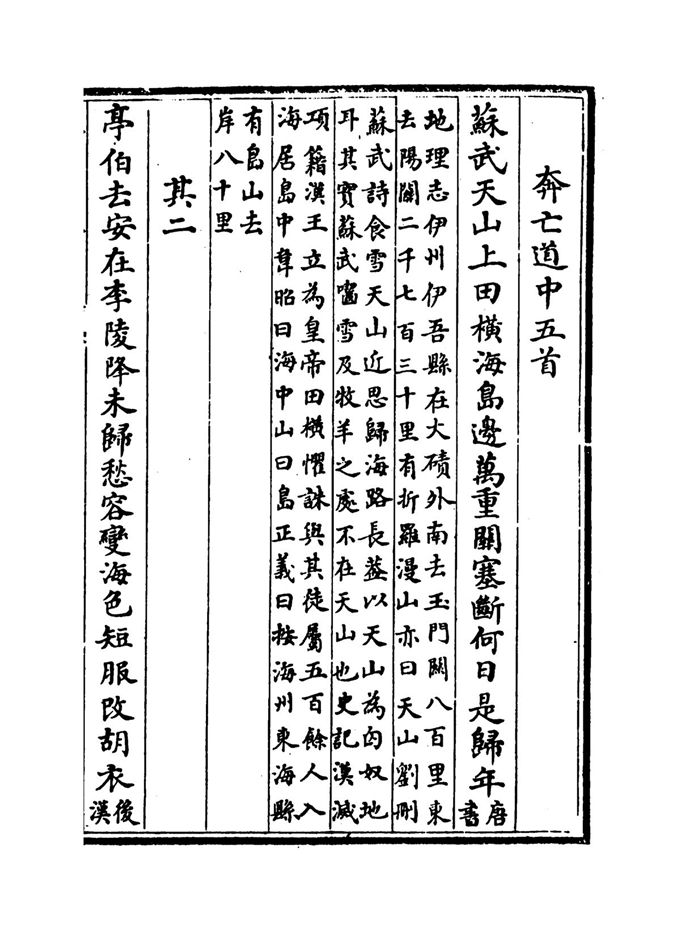 奔亡道中五首
蘇武天山上田橫海島邊萬重關塞斷何日是歸年唐書
地理志伊州伊吾縣在大磧外南去玉門關八百里東
去陽關二千七百三十里有折羅漫山亦曰天山劉刪
蘇武詩食雪天山近思歸海路長葢以天山為匈奴地
耳其實蘇武囓雪及牧羊之處不在天山也史記漢滅
項籍漢王立為皇帝田橫懼誅與其徒屬五百餘人入
海居島中韋昭曰海中山曰島正義曰按海州東海縣
有島山去
岸八十里
其二
亭伯去安在李陵降未歸愁容變海色短服改胡衣後漢